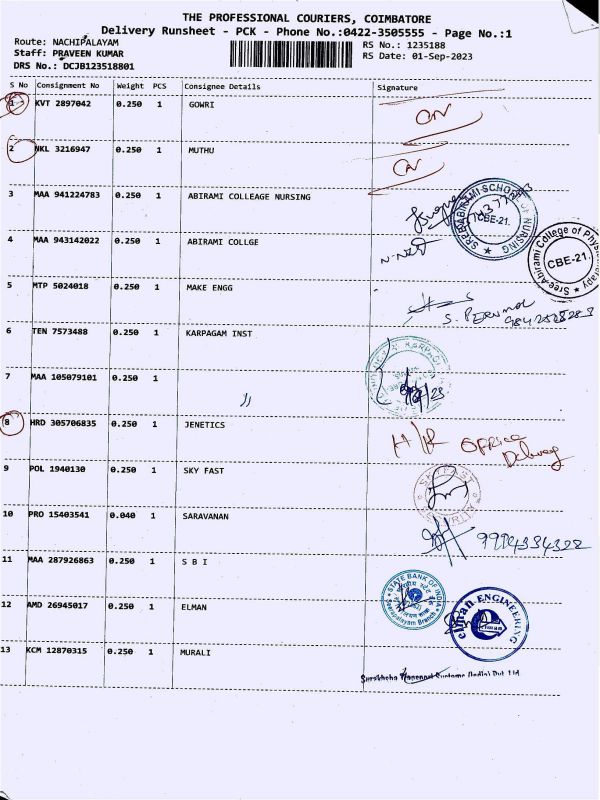 THE PROFESSIONAL COURIERS, COIMBATORE
Delivery Runsheet - PCK - Phone No.:0422-3505555 - Page No.:1
Route: NACHIPALAYAM
Staff: PRAVEEN KUMAR
DRS No.: DCJB123518801
RS No.: 1235188
RS Date: 01-Sep-2023
S No Consignment No Weight PCS Consignee Details Signature
1 KVT 2897042 0.250 1 GOWRI
2 NKL 3216947 0.250 1 MUTHU
3 MAA 941224783 0.250 1 ABIRAMI COLLEAGE NURSING
SREE ABIRAMI SCHOOL OF NURSING
CBE-21.
4 MAA 943142022 0.250 1 ABIRAMI COLLGE
Sree Abirami College of Physiotherapy
CBE-21.
5 MTP 5024018 0.250 1 MAKE ENGG
S. PERUMAL
6 TEN 7573488 0.250 1 KARPAGAM INST
7 MAA 105079101 0.250 1 "
8 HRD 305706835 0.250 1 JENETICS
OFFICE
9 POL 1940130 0.250 1 SKY FAST
SKYFAST
10 PRO 15403541 0.040 1 SARAVANAN
9994334322
11 MAA 287926863 0.250 1 S B I
STATE BANK OF INDIA
12 AMD 26945017 0.250 1 ELMAN
elman ENGINEERING
13 KCM 12870315 0.250 1 MURALI
(India) Pvt. Ltd.